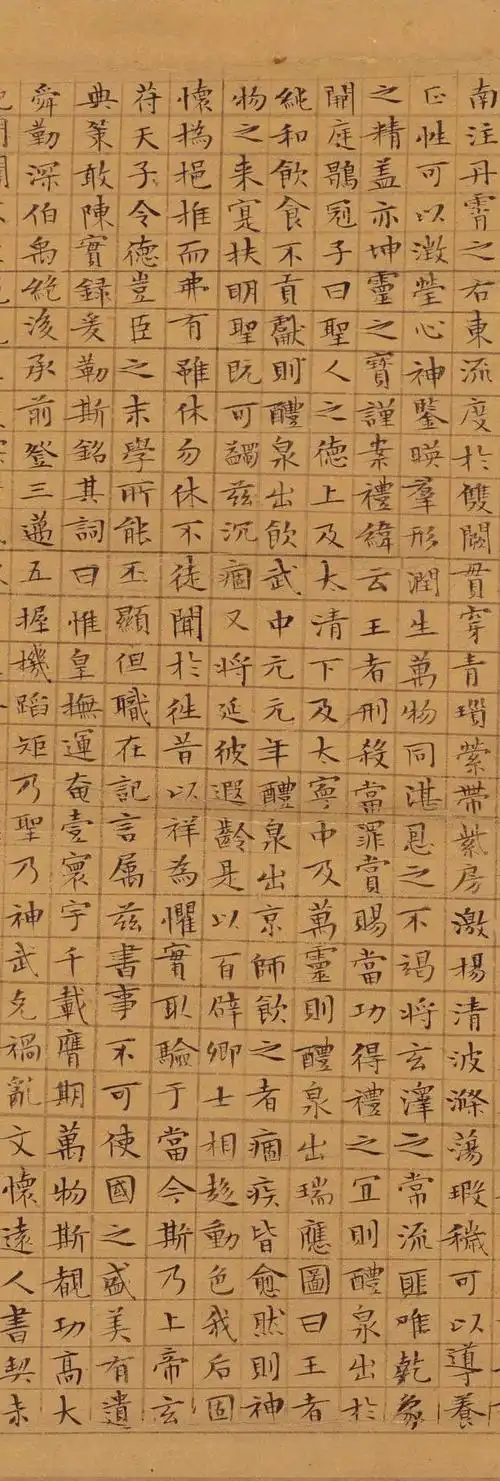 南注丹霄之右東流度於雙闕貫穿青瑣縈帶紫房激揚清波滌蕩瑕穢可以導養
正性可以澂瑩心神鑒暎羣形潤生萬物同湛恩之不竭將玄澤之常流匪唯乾象
之精蓋亦坤靈之寶謹案禮緯云王者刑殺當罪賞賜當功得禮之宜則醴泉出於
開庭鶡冠子曰聖人之德上及太清下及太寧中及萬靈則醴泉出瑞應圖曰王者
純和飲食不貢獻則醴泉出飲武中元元年醴泉出京師飲之者痼疾皆愈然則神
物之来寔扶明聖既可蠲茲沉痼又將延彼遐齡是以百辟卿士相趍動色我后固
懷撝挹推而弗有雖休勿休不徒聞於徃昔以祥為懼實取驗于當今斯乃上帝玄
苻天子令德豈臣之末學所能丕顯但職在記言属茲書事不可使國之盛美有遺
典策敢陳實録爰勒斯銘其詞曰惟皇撫運奄壹寰宇千載膺期萬物斯覩功高大
舜勤深伯禹絶後承前登三邁五握機蹈矩乃聖乃神武克禍亂文懷遠人書契未